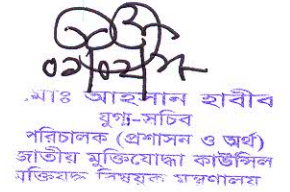 মোঃ আহসান হাবীব
যুগ্ম-সচিব
পরিচালক (প্রশাসন ও অর্থ)
জাতীয় মুক্তিযোদ্ধা কাউন্সিল
মুক্তিযুদ্ধ বিষয়ক মন্ত্রণালয়